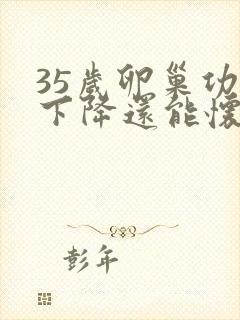 35歲卵巢功
下降還能懷
彭年